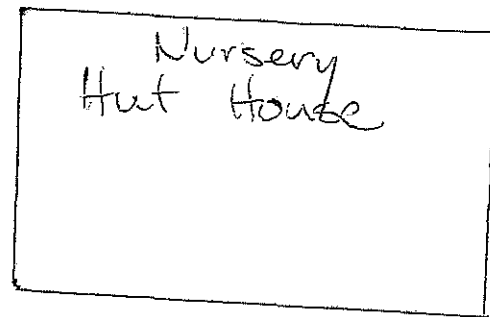 Nursery
Hut House